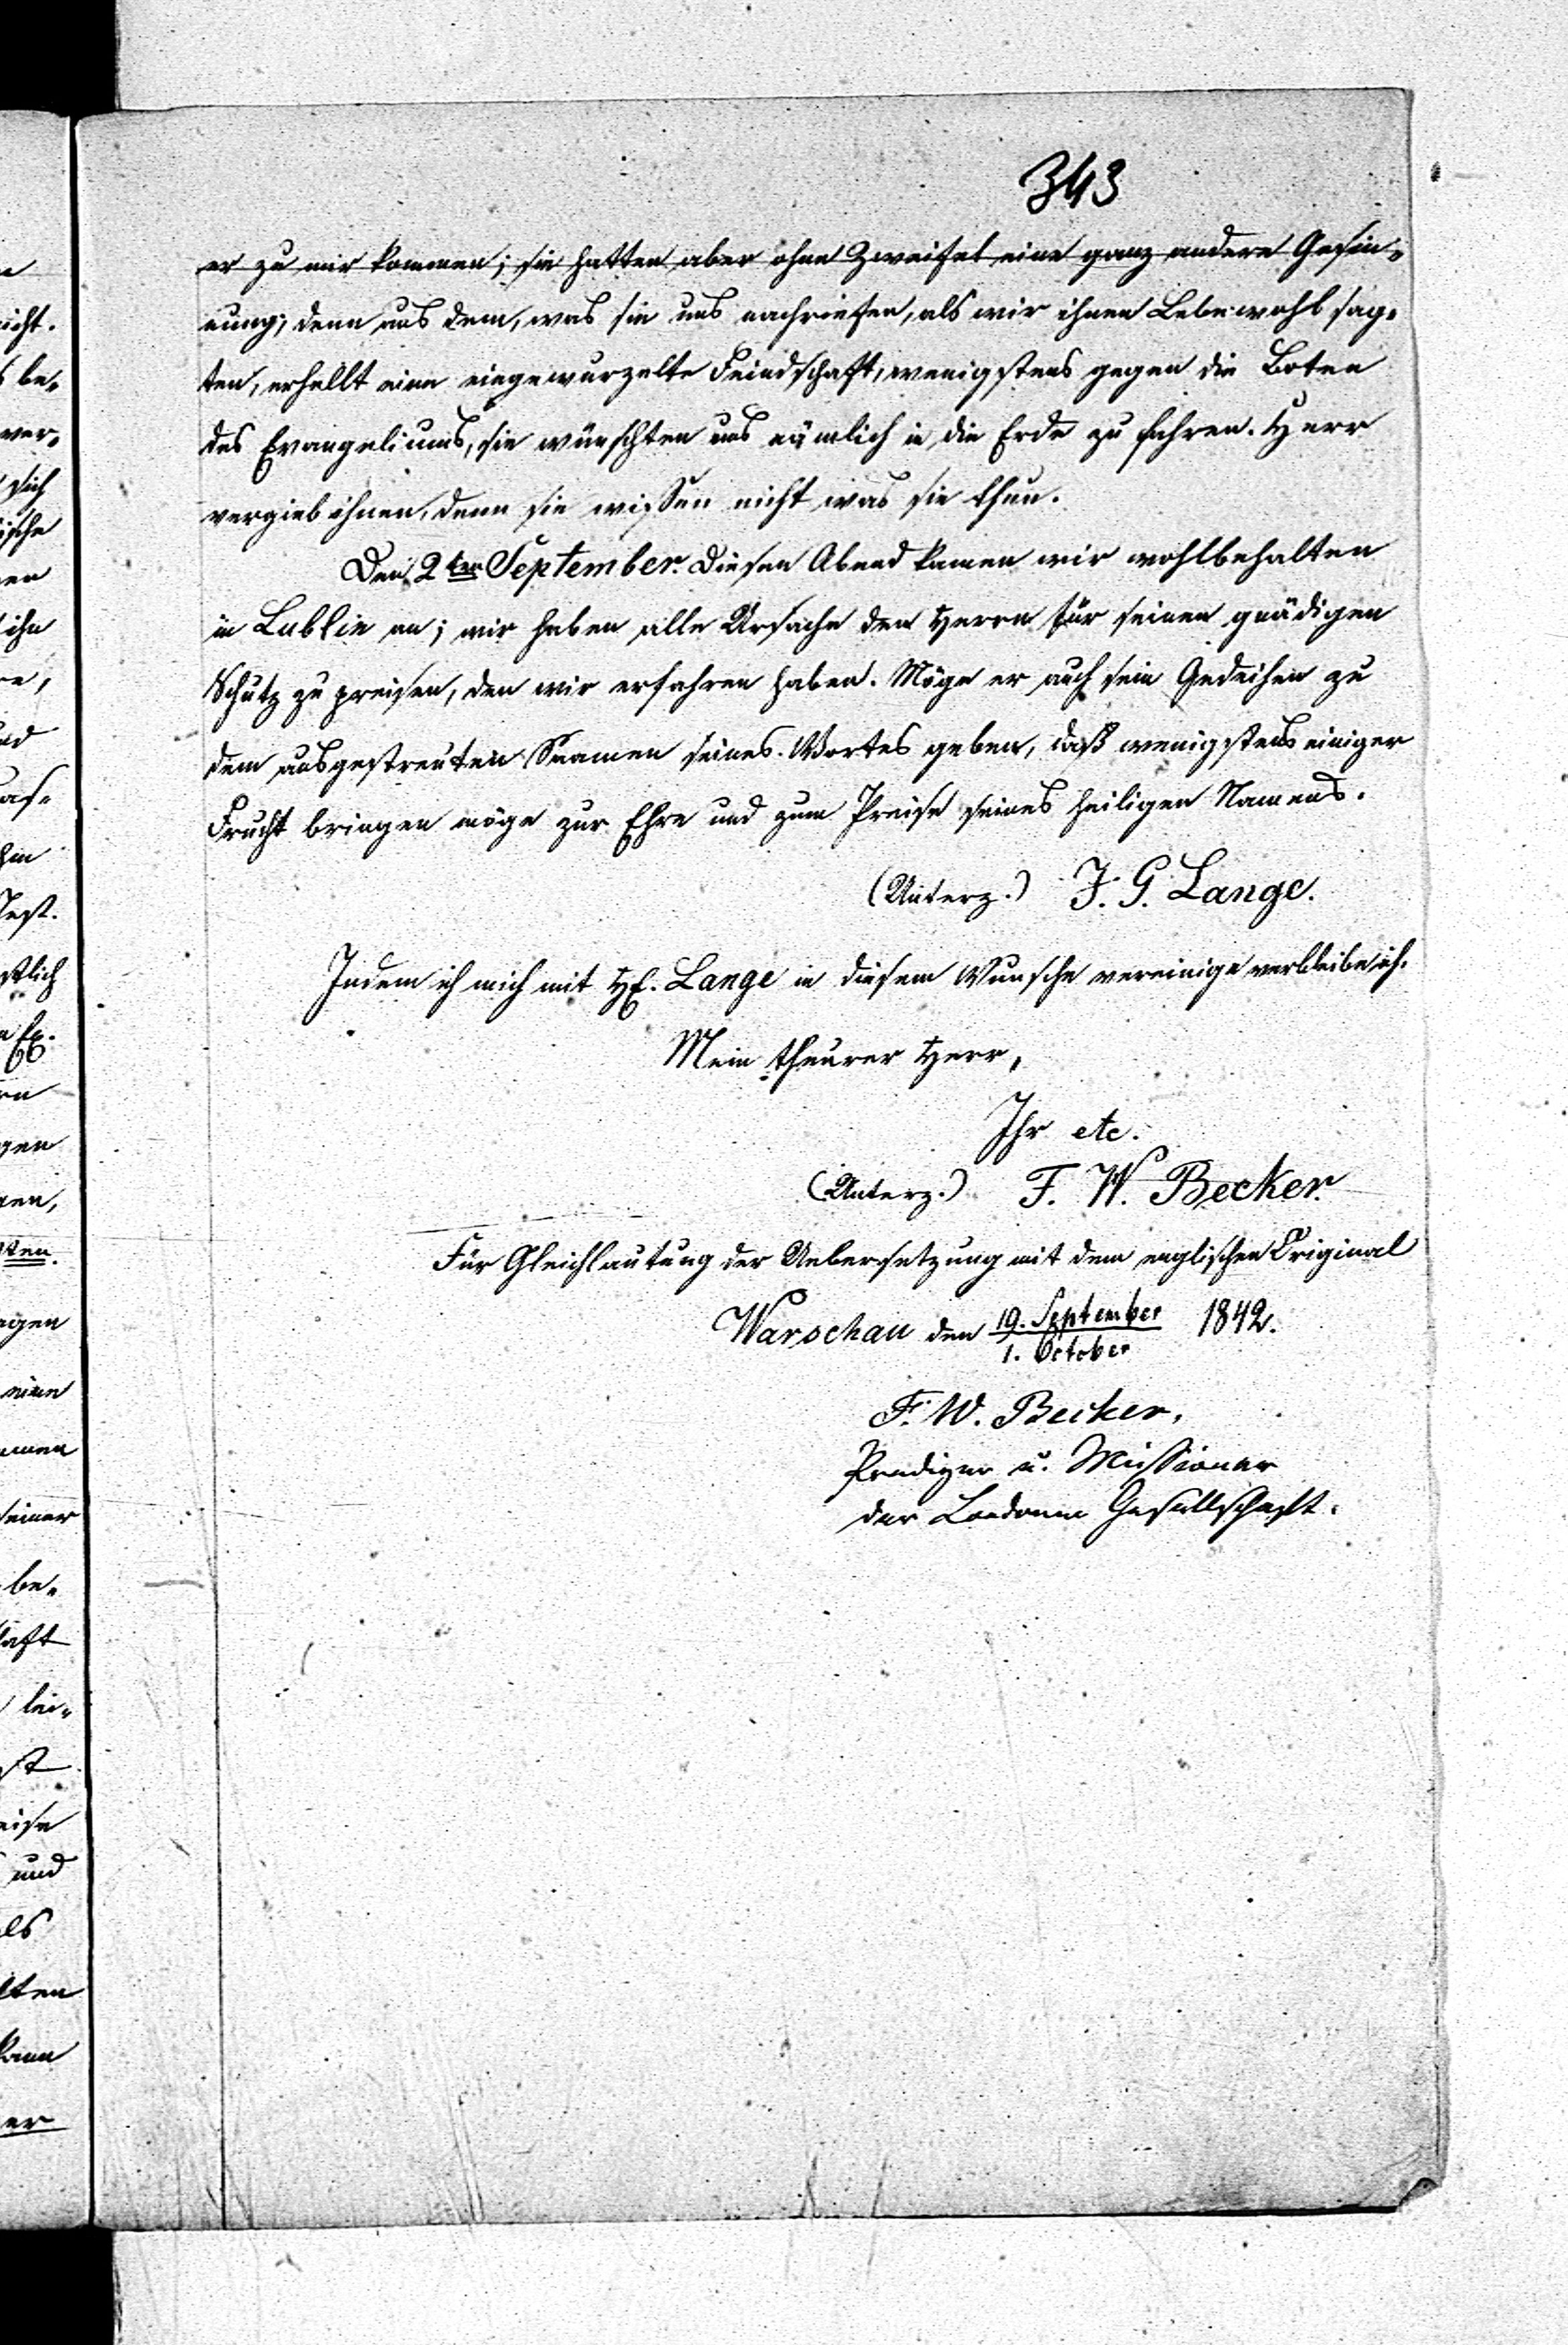 343
er zu mir kommen; sie hatten aber ohne Zweifel eine ganz andere Gesin-
nung; denn aus dem, was sie uns nachriefen, als wir ihnen Lebewohl sag-
ten, erhellt eine eingewurzelte Feindschaft, wenigstens gegen die Boten
des Evangeliums, sie wünschten uns nämlich in die Erde zu fahren. Herr
vergieb ihnen, denn sie wissen nicht was sie thun.
Den 2ten September. Diesen Abend kamen wir wohlbehalten
in Lublin an; wir haben alle Ursache den Herrn für seinen gnädigen
Schutz zu preisen, den wir erfahren haben. Möge er auch sein Gedeihen zu
dem ausgestreuten Saamen seines Wortes geben, daß wenigstens einiger
Frucht bringen möge zur Ehre und zum Preise seines heiligen Namens.
(Unterz.) J. G. Lange.
Indem ich mich mit H. Lange in diesem Wunsche vereinige verbleibe ich.
Mein theurer Herr,
Ihr etc.
(Unterz.) F. W. Becker.
Für Gleichlautung der Uebersetzung mit dem englischen Original
Warschau den 19. September / 1. October 1842.
F. W. Becker,
Prediger u. Missionar
der Londoner Gesellschaft.